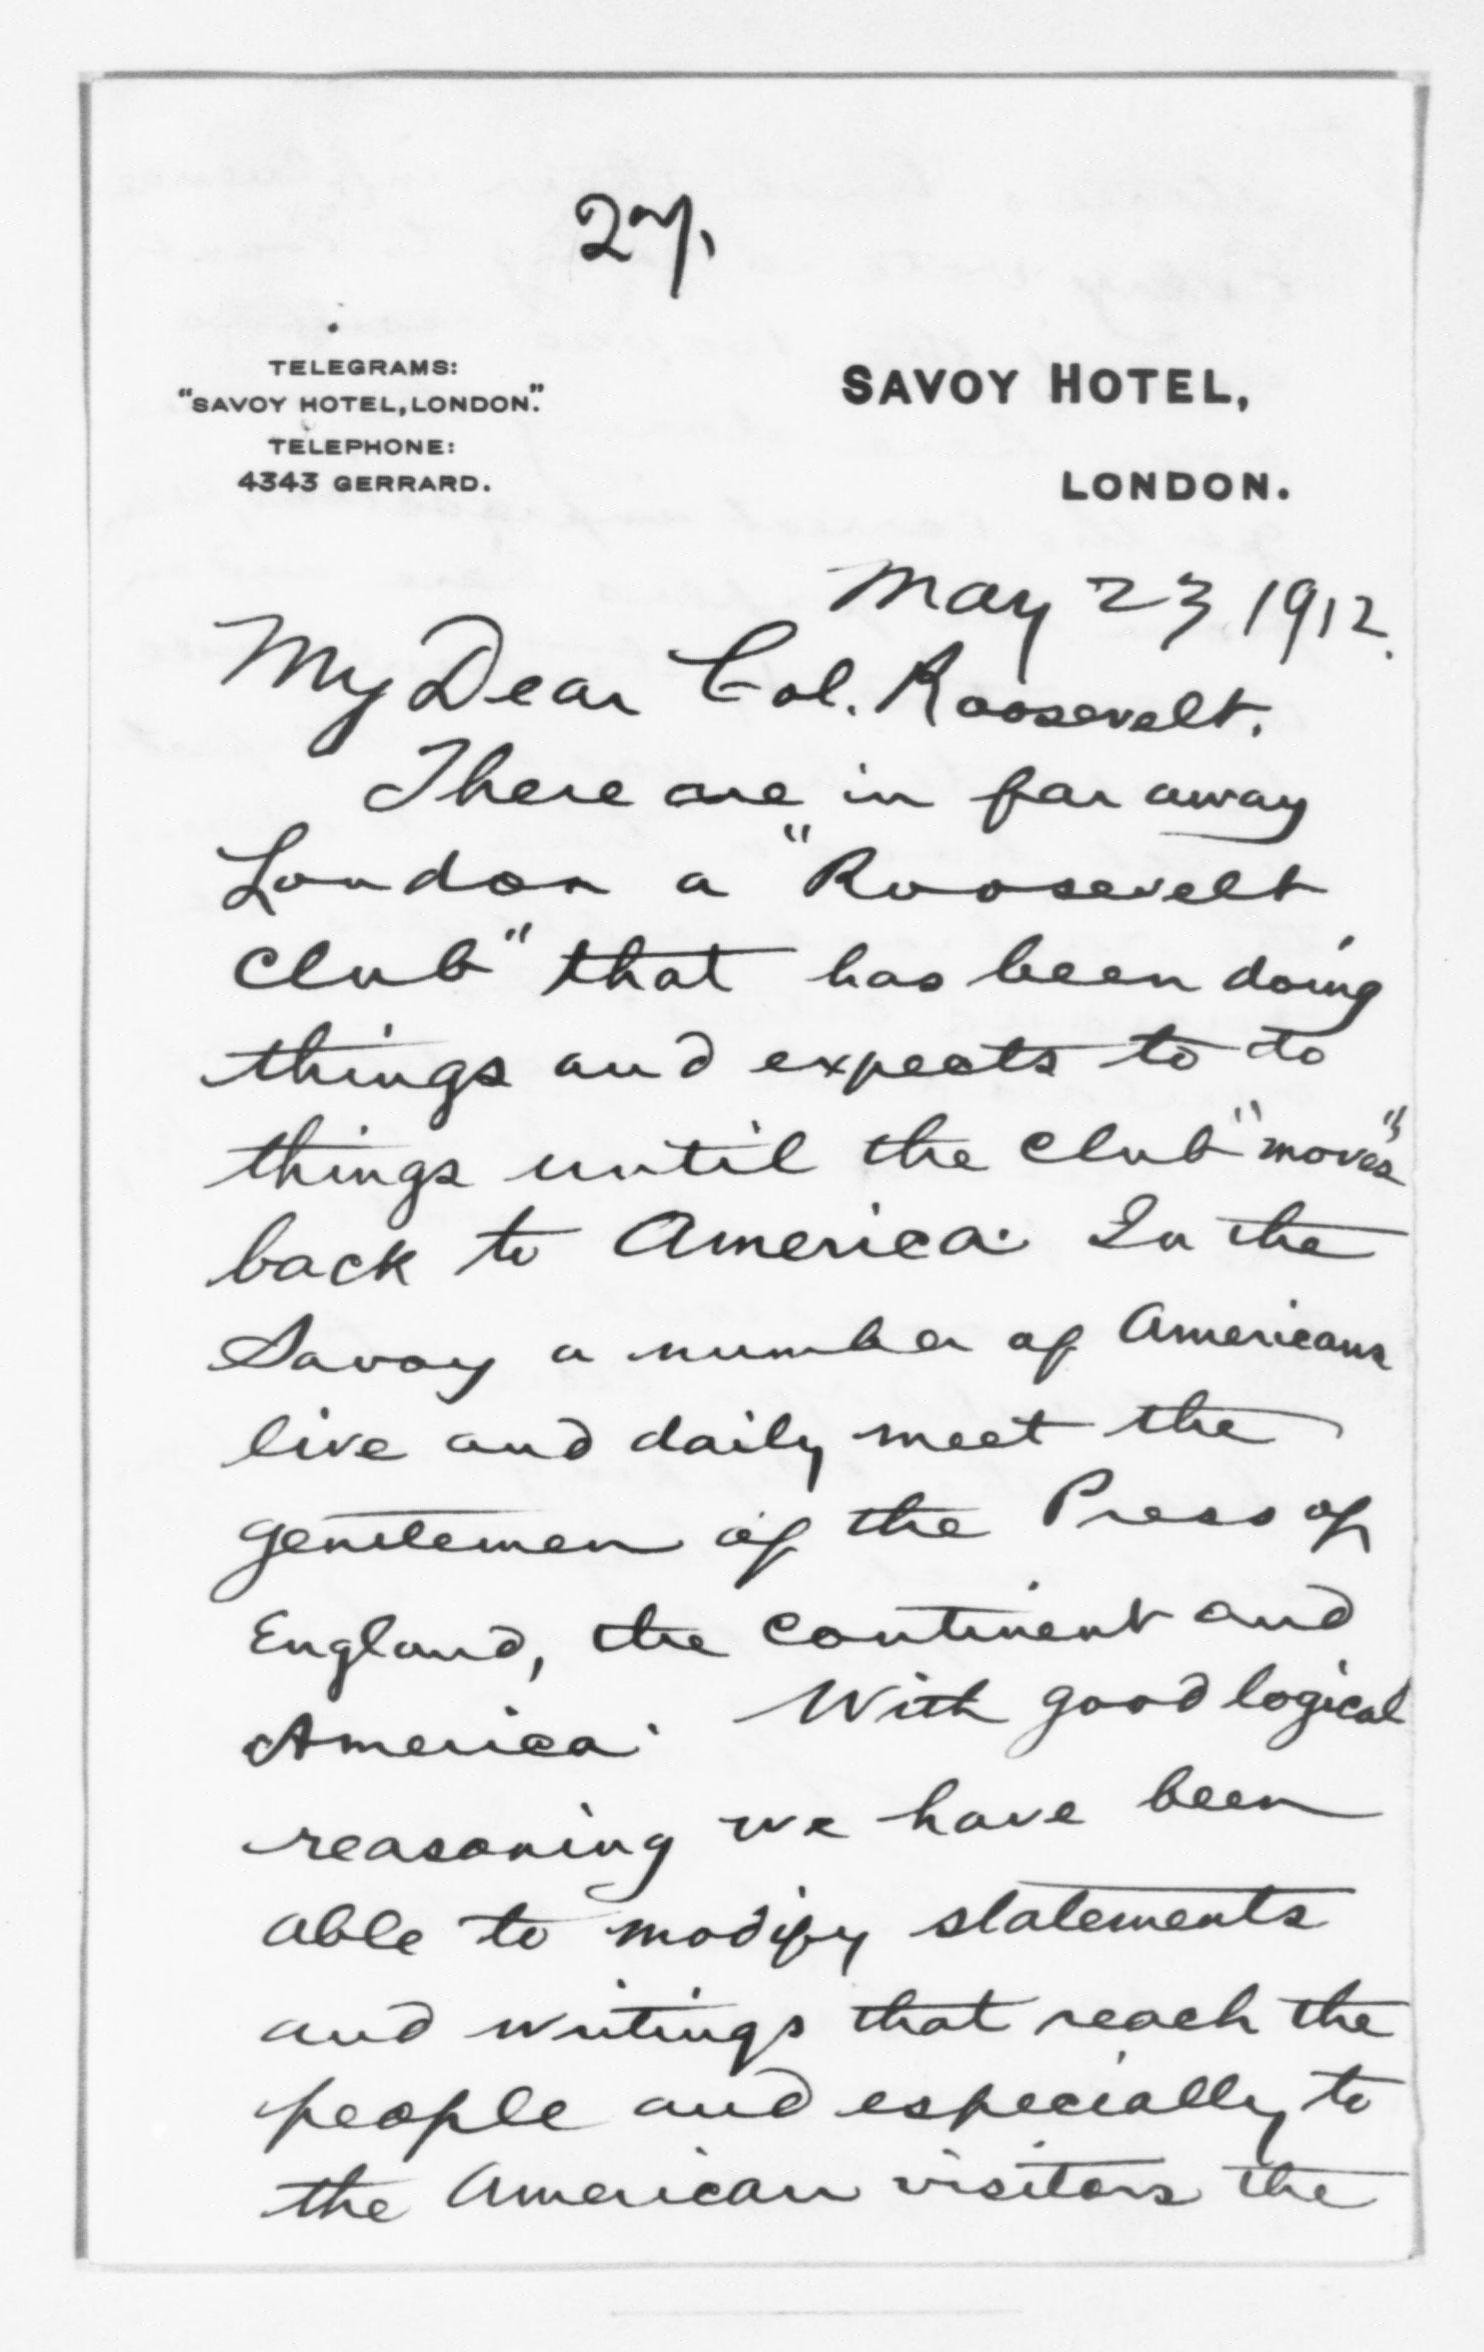 27.
TELEGRAMS:
"SAVOY HOTEL, LONDON."
TELEPHONE:
4343 GERRARD.
SAVOY HOTEL,
LONDON.
May 23, 1912.
My Dear Col. Roosevelt.
There are in far away
London a "Roosevelt
Club" that has been doing
things and expects to do
things until the club "moves"
back to America. In the
Savoy a number of Americans
live and daily meet the
gentlemen of the Press of
England, the continent and
America. With good logical
reasoning we have been
able to modify statements
and writings that reach the
people and especially to
the American visitors the